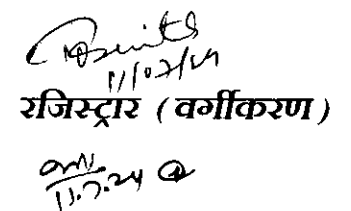 11/07/24
रजिस्ट्रार (वर्गीकरण)
11.7.24